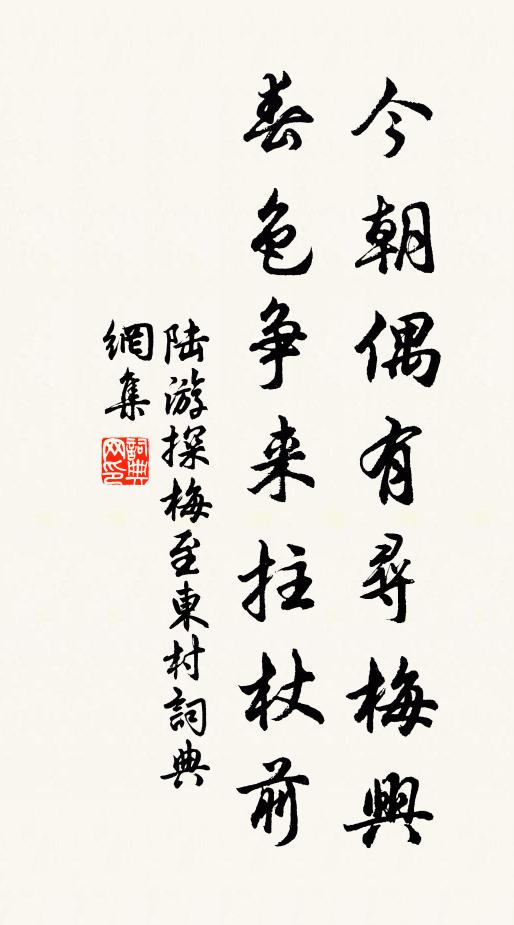 今朝偶有尋梅興
春色争来拄杖前
陆游探梅至東村詞典
網集
詞典
网印